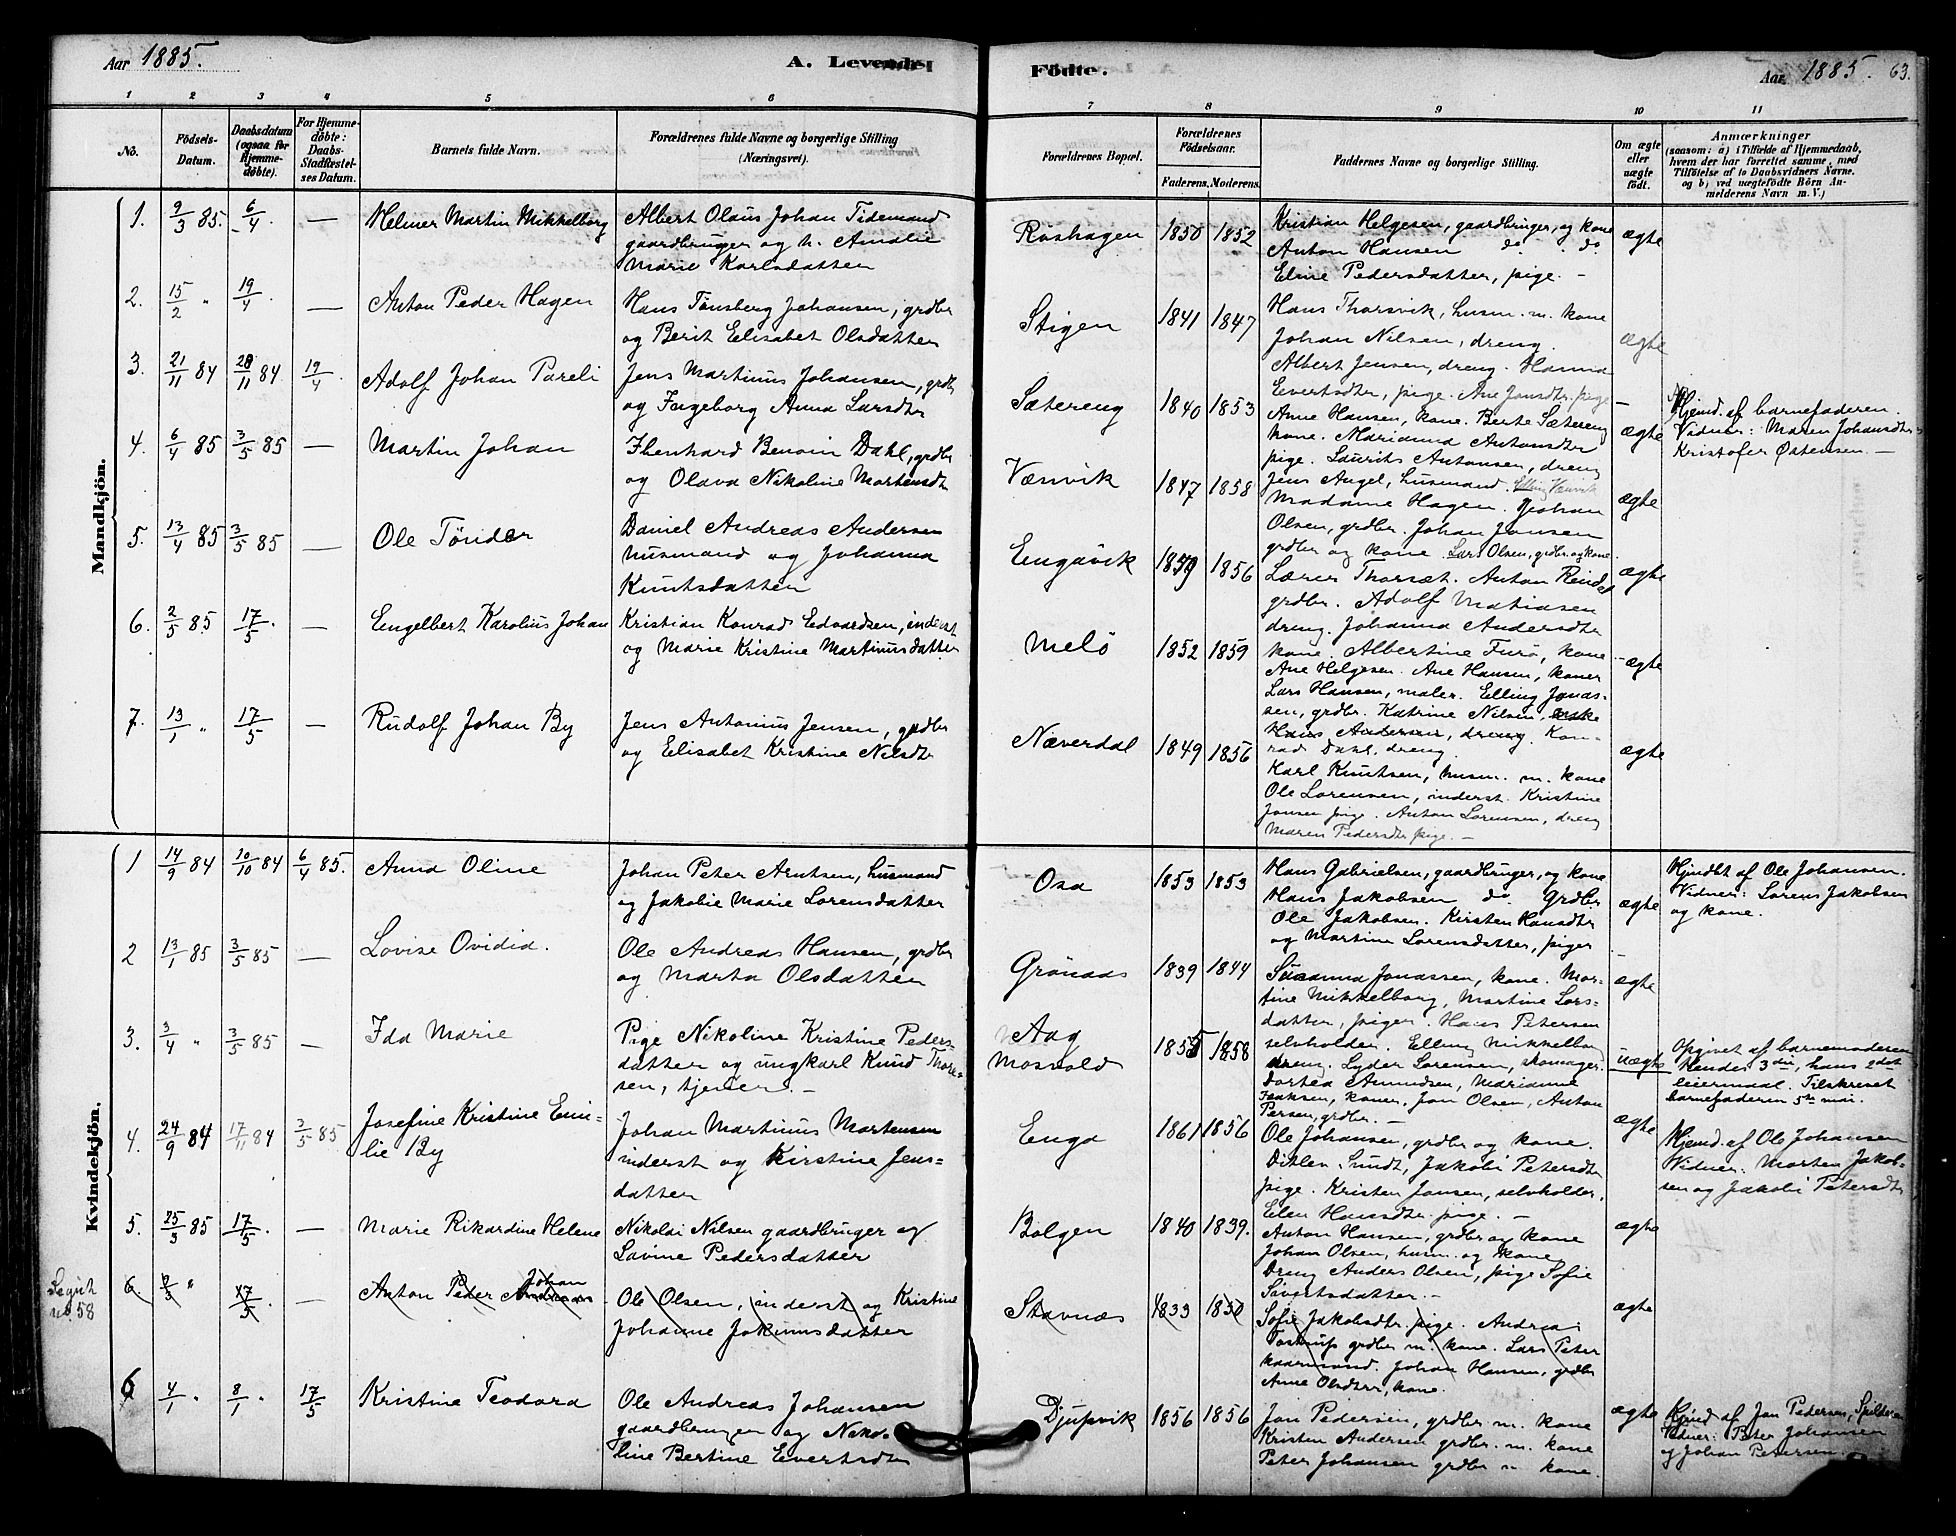 Aar 1885.
A. Levende
Födte.
Aar 1885. 63.
1 2 3 4 5 6 7 8 9 10 11
No.
Födsels-
Datum.
Daabsdatum
(ogsaa for
Hjemme-
döbte).
For Hjemme-
döbte:
Daabs-
Stadfæstel-
ses Datum.
Barnets fulde Navn.
Forældrenes fulde Navne og borgerlige Stilling
(Næringsvei).
Forældrenes Bopæl.
Forældrenes
Födselsaar.
Faderens. Moderens.
Faddernes Navne og borgerlige Stilling.
Om ægte
eller
uægte
födt.
Anmærkninger
(saasom: a) i Tilfælde af Hjemmedaab,
hvem der har forrettet samme, med
Tilföielse af to Daabsvidners Navne.
og b) ved uægtefödte Börn An-
melderens Navn m. V.)
Mandkjön.
1. 9/3 85. 6/4 — Helmer Martin Mikkelborg
Albert Olaus Johan Tidemand
gaardbruger og h. Amalie
Marie Karlsdatter
Röshagen 1850 1852
Kristian Helgesen, gaardbruger, og kone
Anton Hansen do. do
Eline Pedersdatter, pige. –
ægte
2. 15/2 " 19/4 — Anton Peder Hagen
Hans Tönsberg Johansen, grdbr
og Berit Elisabet Olsdatter
Stigen 1841 1847
Hans Thorsvik, husm. m. kone
Johan Nilsen, dreng.
ægte
3. 21/11 84 28/11 84 19/4 Adolf Johan Pareli
Jens Martinus Johansen, grdbr
og Ingeborg Anna Larsdtr
Sætereng 1840 1853
Albert Jensen, dreng. Hanna
Evertsdtr, pige. Ane Jonsdtr. pige
Anne Hansen, kone. Berte Sætereng
kone. Marianna Antonsdtr
pige. Laurits Antonsen, dreng
ægte
Hjemd. af barnefaderen.
Vidner: Maren Johansdtr
Kristofer Östensen. —
4. 6/4 85 3/5 85 — Martin Johan
Ilenhard Benoni Dahl, grdbr
og Olava Nikoline Mortensdtr
Vænvik 1847 1858
Jens Angel, husmand. Elling Vænvik
Madame Hagen. Johan
Olsen, grdbr. Johan Jonsen
grdbr og kone. Lars Olsen, grdbr. og kone.
ægte
5. 13/4 85 3/5 85 — Ole Tönder
Daniel Andreas Andersen
husmand og Johanna
Knutsdatter
Engavik 1856
Lærer Thorsæt. Anton Reindal
grdbr. Adolf Matiasen
dreng. Johanna Andersdtr
kone. Albertine Furö, kone
ægte
6. 2/5 85 17/5. — Engelbert Karolius Johan
Kristian Konrad Edvardsen, inderst
og Marie Kristine Martinusdatter
Melö 1852 1859
Ane Helgesen. Ane Hansen, koner
Lars Hansen, maler. Elling Jonas-
sen, grdbr. Katrine Nilsen, enke
Hans Andersen, dreng. Kon-
rad Dahl, dreng
ægte
7. 13/1 " 17/5 — Rudolf Johan By
Jens Antonius Jensen, grdbr
og Elisabet Kristine Nilsdtr
Næverdal 1849 1856
Karl Knutsen, husm. m. kone
Ole Lorensen, inderst. Kristine
Jonsen pige. Anton Lorensen, dreng
Maren Pedersdtr pige. —
ægte
Kvindekjön.
1 14/9 84 10/10 84 6/4 85. Anna Oline
Johan Peter Arntsen, husmand
og Jakobie Marie Lorensdatter
Osa 1853 1853
Hans Gabrielsen, gaardbruger, og kone
Hans Jakobsen do. Grdbr
Ole Jakobsen. Kirsten Hansdtr
og Martine Lorensdatter, piger
ægte
Hjmdbt af Ole Johansen.
Vidner: Lorens Jakobsen
og kone.
2 13/1 85 3/5 85 — Lovise Ovidia.
Ole Andreas Hansen, grdbr
og Marta Olsdatter
Grönaas 1839 1844
Susanna Jonassen, kone. Mar-
tine Mikkelborg, Martine Lars-
datter, piger. Hans Petersen
selvholder. Elling Mikkelborg
ægte
3. 3/4 " 3/5 85 — Ida Marie
Pige Nikoline Kristine Peders-
datter og ungkarl Knud Thore-
sen, tjener. —
Aag
Mosvold
1855 1858
dreng. Lyder Lorensen, skomager.
Dortea Amundsen, Marianne
Isaksen, koner. Jon Olsen, Anton
Persen, grdbr. —
uægte
Opgivet af barnemoderen
Hendes 3die, hans 2det
leiermaal. Tilskrevet
barnefaderen 5te mai.
4. 24/9 84 17/11 84 3/5 85 Josefine Kristine Emi-
lie By
Johan Martinus Mortensen
inderst og Kirstine Jens-
datter
Enga 1861 1856
Ole Johansen, grdbr og kone.
Ditlen Sundt, Jakobi Petersdtr
pige. Kristen Jonsen, selvholder.
Elen Hansdtr. pige. —
ægte
Hjemd. af Ole Johansen
Vidner: Morten Jakob-
sen og Jakobi Petersdtr
5. 25/3 85 17/5. — Marie Rikardine Helene
Nikolai Nilsen gaardbruger og
Lavine Pedersdatter
Bolgen 1840 1839.
Anton Hansen, grdbr og kone
Johan Olsen, husm. og kone
Dreng Anders Olsen, pige Sofie
Sivertsdatter. —
ægte
no. 58
6. 17/5 — Anton Peder Johan
Ole Olsen, inderst og Kristine
Johanne Jokumsdatter
Stavnæs 1833 1850
Sofie Jakobsdtr. pige. Andreas
Tostrup grdbr m. kone. Lars Peter
Kaarmand. Johan Hansen, grdbr
Anne Olsdtr, kone.
ægte
6 4/1 " 8/1 " 17/5 Kristine Teodora
Ole Andreas Johansen
gaardbruger og Niko-
line Bertine Evertsdtr
Djupvik 1856 1856
Jon Pedersen, grdbr. m. kone
Kristen Andersen grdbr. m. kone
Peter Johansen grdbr m kone.
ægte
Hjmd af Jon Pedersen,
Vidner: Peter Johansen
og Johan Petersen.